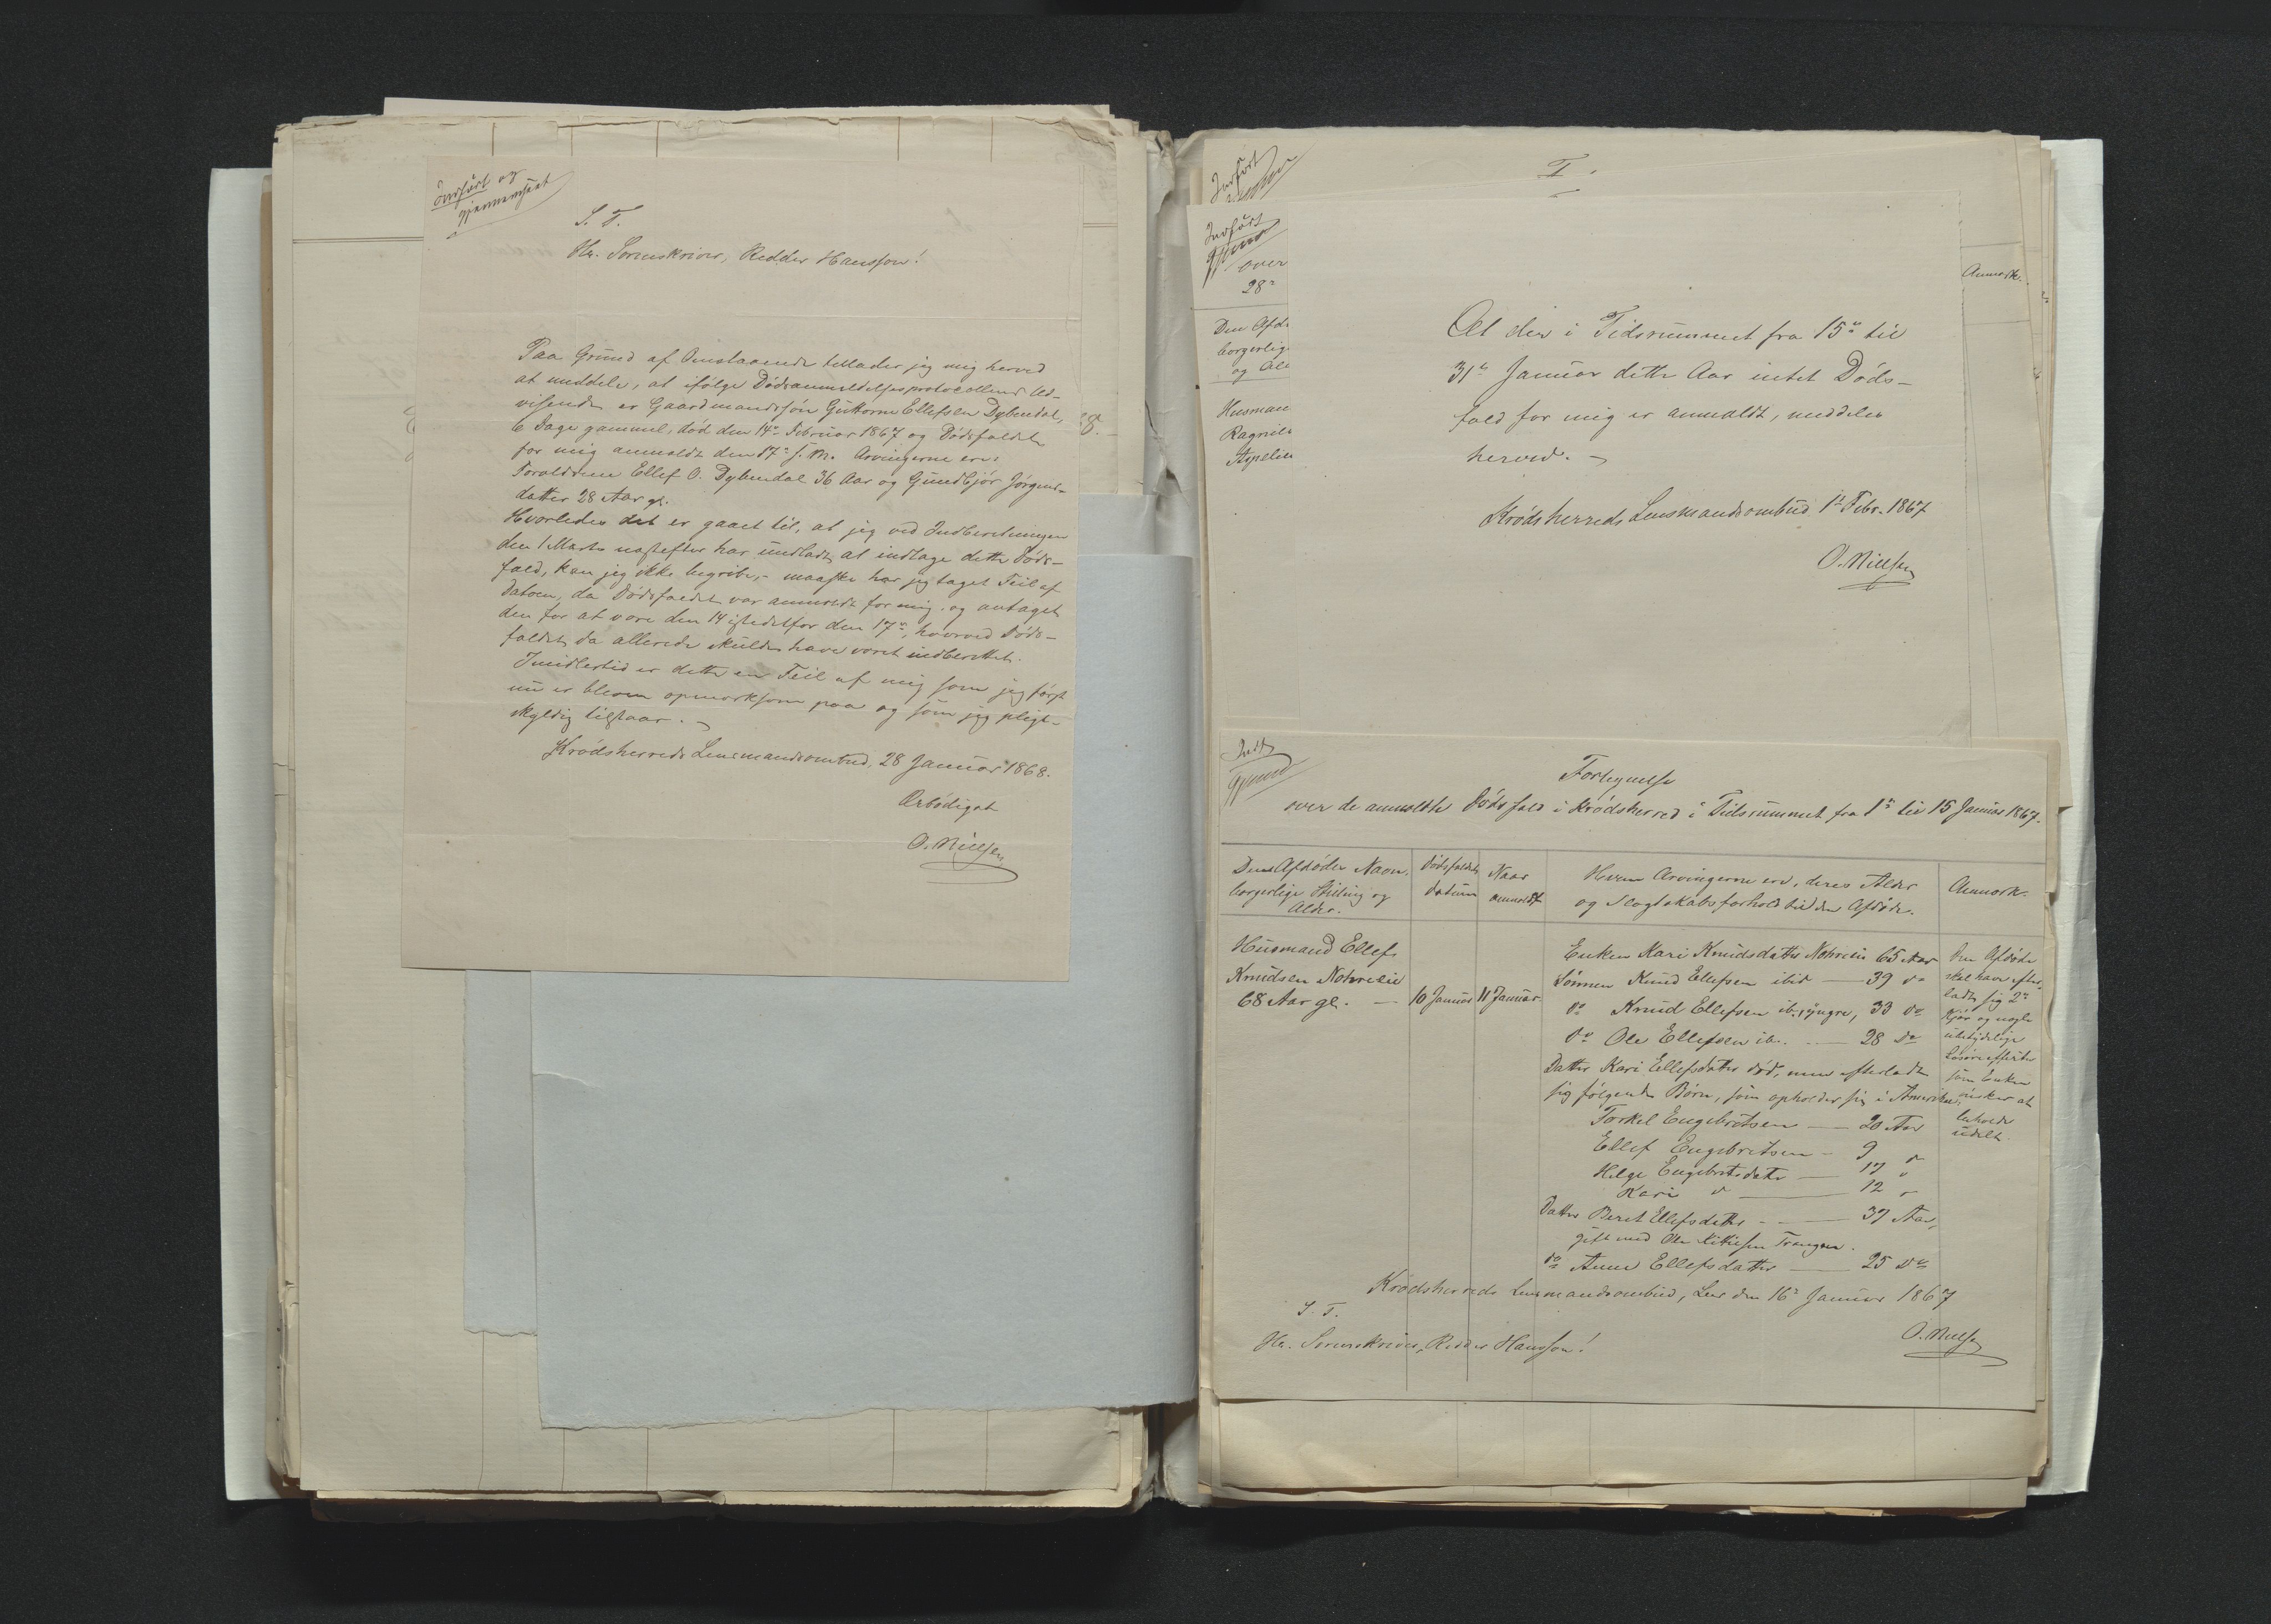 Indført og
gjennemseet
S. T.
Hr. Sorenskriver, Ridder Hansson!
Paa Grund af Omstaaende tillader jeg mig herved
at meddele, at ifølge Dødsanmeldelsesprotocollens Ud-
visende er Gaardmandssøn Guttorm Ellefsen Dybendal,
6 Dage gammel, død den 14de Februar 1867 og Dødsfaldet
for mig anmeldt den 17de s. M. Arvingerne ere:
Forældrene Ellef O. Dybendal 36 Aar og Gundbjør Jørgens-
datter 28 Aar gl.
Hvorledes det er gaaet til, at jeg ved Indberetningen
den 1 Marts næstefter har undladt at indtage dette Døds-
fald, kan jeg ikke begribe, - maaske har jeg taget Feil af
Datoen, da Dødsfaldet var anmeldt for mig, og antaget
den for at være den 14 istedetfor den 17de, hvorved Døds-
faldet da allerede skulde have været indberettet.
Imidlertid er dette en Feil af mig som jeg først
nu er bleven opmærksom paa og som jeg pligt-
skyldig tilstaar.
Krødsherreds Lensmandsombud, 28 Januar 1868.
Ærbødigst
O. Nielsen
8.
I.
Indført
Indført
over
28de
Den Afdø
borgerlig
og Al
Husman
Ragnil
Aspelien
Anmærk.
At der i Tidsrummet fra 15de til
31te Januar dette Aar intet Døds-
fald for mig er anmeldt, meddeles
herved.
Krødsherreds Lensmandsombud 1ste Febr. 1867
O. Nielsen
Indf
Fortegnelse
over de anmeldte Dødsfald i Krødsherred i Tidsrummet fra 1ste til 15 Januar 1867.
Den Afdødes Navn, borgerlige Stilling og Alder.
Dødsfaldets Datum
Naar anmeldt
Hvem Arvingerne ere, deres Alder og Slægtskabsforhold til den Afdøde.
Anmærk.
Husmand Ellef
Knudsen Nohreeie
68 Aar gl. —
10 Januar
11 Januar
Enken Kari Knudsdatter Nohreeie 65 Aar
Sønnen Knud Ellefsen ibid — 39 do
do Knud Ellefsen ib. yngre, 33 do
do Ole Ellefsen ib. — 28 do
Datter Kari Ellefsdatter død, men efterladt
sig følgende Børn, som opholder sig i Amerika:
Torkel Engebretsen — 20 Aar
Ellef Engebretsen — 9 "
Helge Engebretsdatter — 17 "
Kari " — 12 "
Datter Beret Ellefsdatter — 37 Aar,
gift med Ole Kittilsen Trangen.
do Anne Ellefsdatter — 25 do
Den Afdøde
skal have efter-
ladt sig 2de
Kjør og nogle
ubetydelige
Løsøreeffekter
som Enken
ønsker at
beholde
udelt.
Krødsherreds Lensmandsombud, Leer den 16de Januar 1867
O. Nielsen
S. T.
Hr. Sorenskriver, Ridder Hansson!